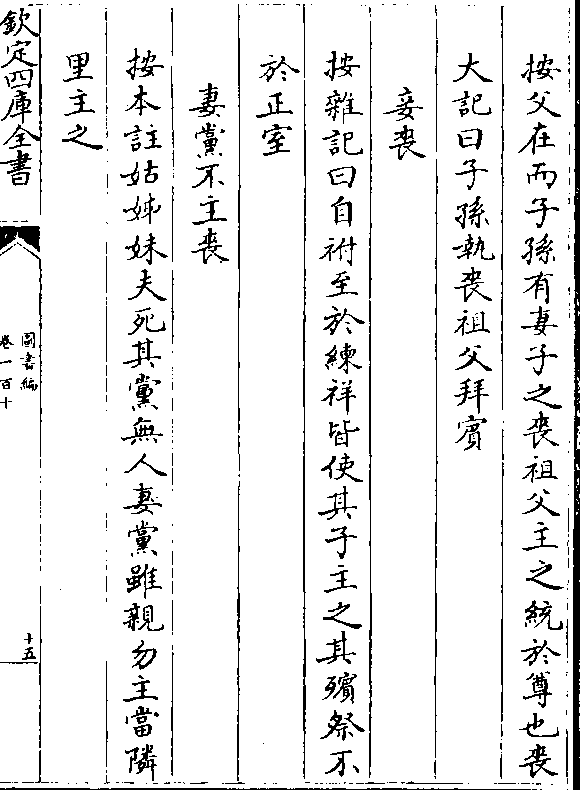 按父在而子孫有妻子之喪祖父主之統於尊也喪
大記曰子孫執喪祖父拜賓
妾喪
按雜記曰自祔至於練祥皆使其子主之其殯祭不
於正室
妻黨不主喪
按本註姑姊妹夫死其黨無人妻黨雖親勿主當隣
里主之
欽定四庫全書
圖書編
卷一百十
十五